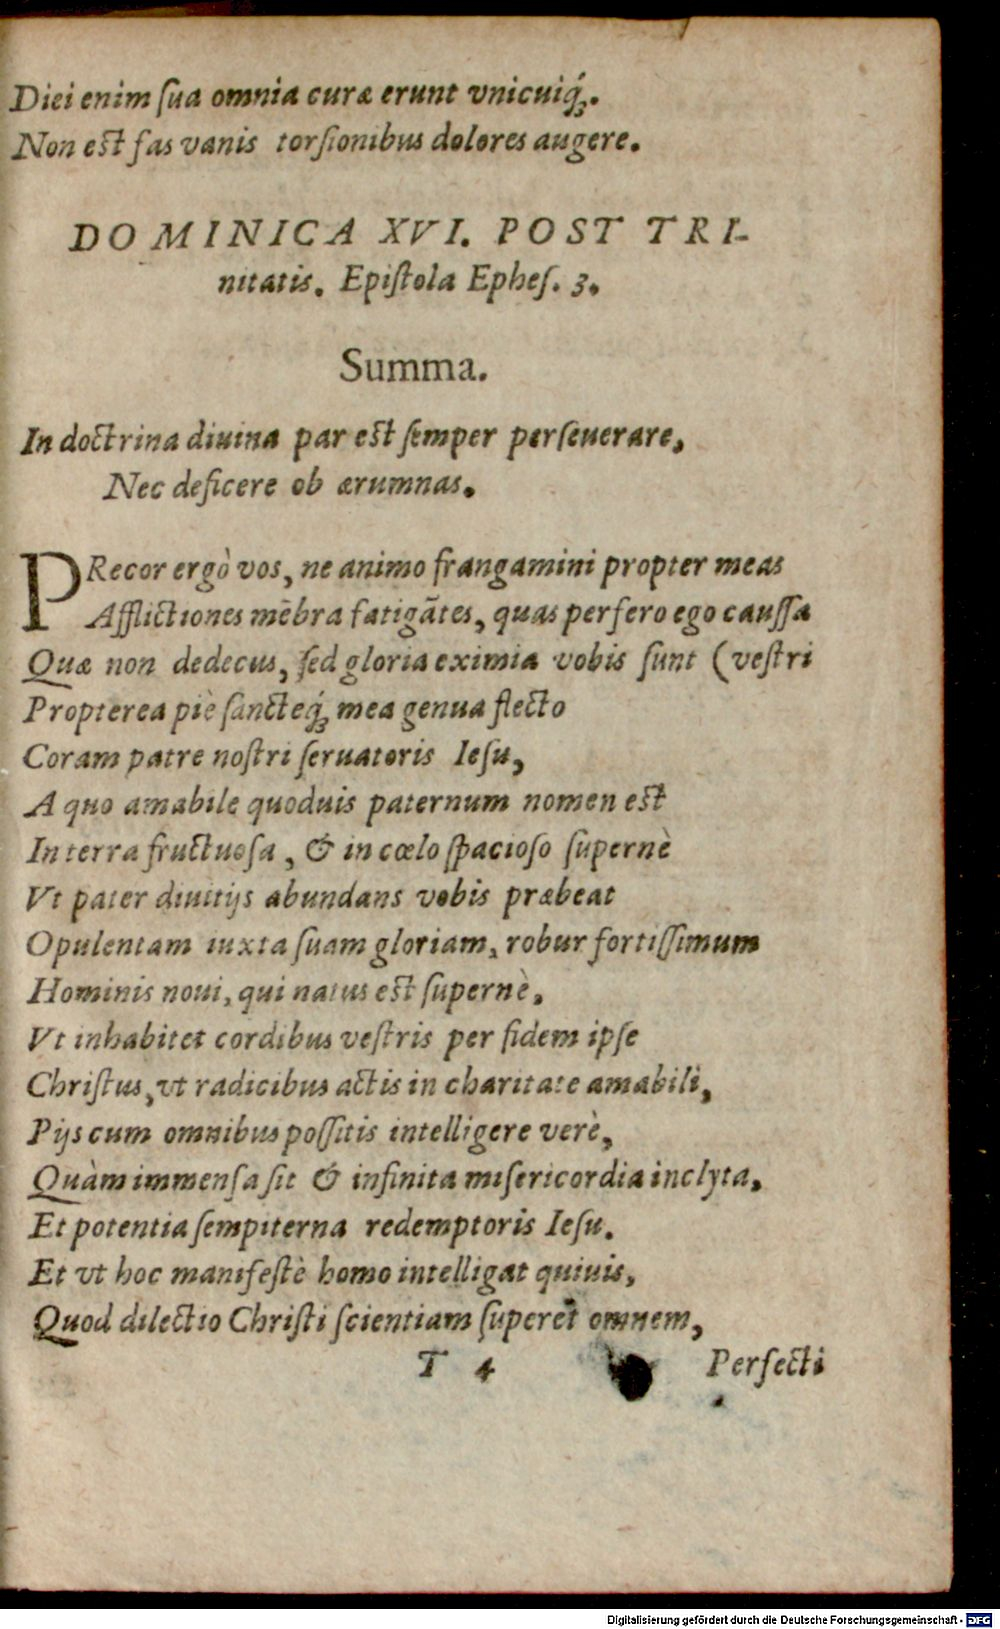 Diei enim ſua omnia curæ erunt vnicuiq́;.
Non est fas vanis torſionibus dolores augere.
DOMINICA XVI. POST TRI-
nitatis. Epiſtola Epheſ. 3.
Summa.
In doctrina diuina par est ſemper perſeuerare,
Nec deficere ob ærumnas.
PRecor ergò vos, ne animo frangamini propter meas
Afflictiones mẽbra fatigãtes, quas perfero ego cauſſa
Quæ non dedecus, ſed gloria eximia vobis ſunt (veſtri
Propterea piè ſancteq́; mea genua flecto
Coram patre noſtri ſeruatoris Ieſu,
A quo amabile quoduis paternum nomen est
In terra fructuoſa, & in cœlo ſpacioſo ſupernè
Vt pater diuitijs abundans vobis præbeat
Opulentam iuxta ſuam gloriam, robur fortiſſimum
Hominis noui, qui natus est ſupernè.
Vt inhabitet cordibus veſtris per fidem ipſe
Chriſtus, vt radicibus actis in charitate amabili,
Pijs cum omnibus poſſitis intelligere verè,
Quàm immenſa ſit & infinita miſericordia inclyta,
Et potentia ſempiterna redemptoris Ieſu.
Et vt hoc manifeſtè homo intelligat quiuis,
Quod dilectio Chriſti ſcientiam ſuperet omnem,
T 4 Perfecti
Digitalisierung gefördert durch die Deutsche Forschungsgemeinschaft - DFG